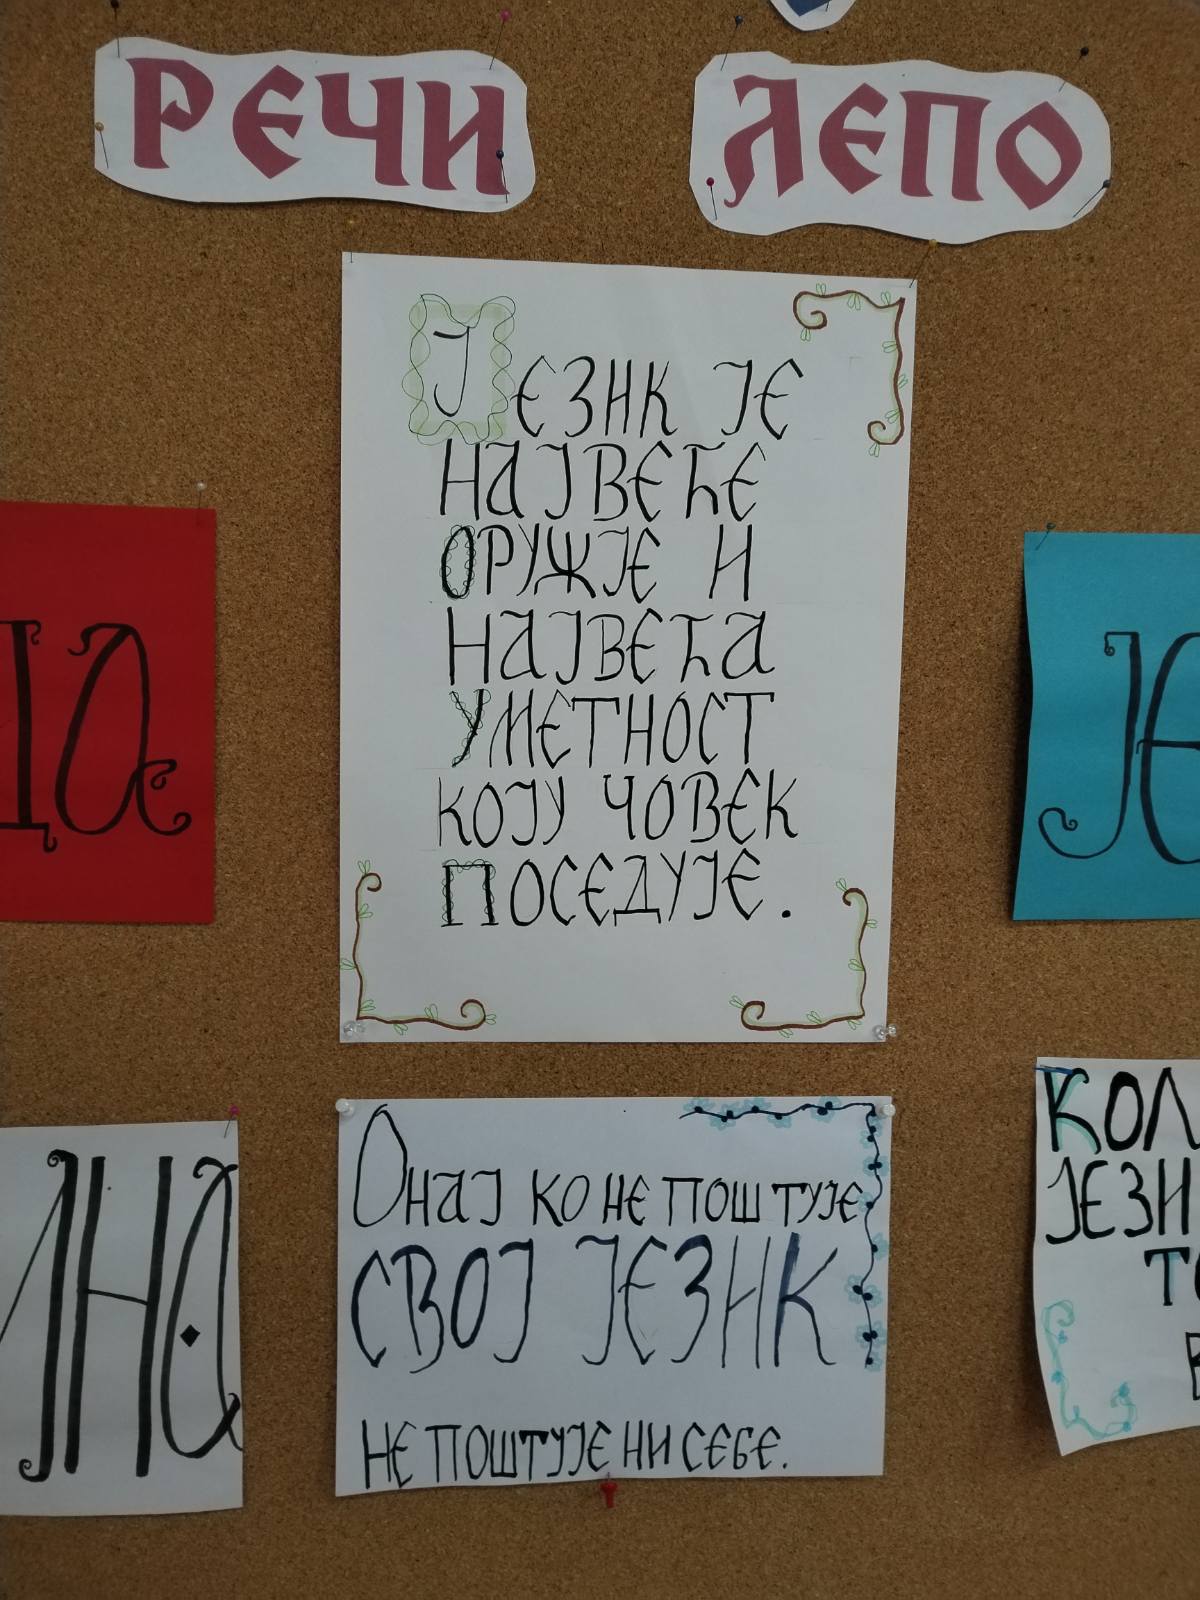 РЕЧИ ЛЕПО
ЈЕЗИК ЈЕ
НАЈВЕЋЕ
ОРУЖЈЕ И
НАЈВЕЋА
УМЕТНОСТ
КОЈУ ЧОВЕК
ПОСЕДУЈЕ.
ОНАЈ КО НЕ ПОШТУЈЕ
СВОЈ ЈЕЗИК
НЕ ПОШТУЈЕ НИ СЕБЕ.
ЈЕ
КОЛ
ЈЕЗИ